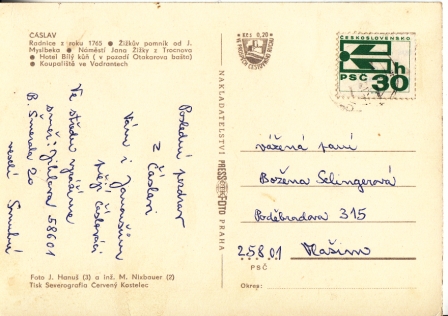 ČÁSLAV
Radnice z roku 1765 ● Žižkův pomník od J.
Myslbeka ● Náměstí Jana Žižky z Trocnova
● Hotel Bílý kůň ( v pozadí Otakarova bašta)
● Koupaliště ve Vodrantech
Poslední pozdrav
z Čáslavi
Vám i
přejí Čáslaváci
Ve středu
směr Jihlava 58601
B. Šmerala 20
Foto J. Hanuš (3) a inž. M. Nixbauer (2)
Tisk Severografia Červený Kostelec
NAKLADATELSTVÍ PRESSFOTO PRAHA
Kčs 0,20
ČESKOSLOVENSKO
PSČ
30h
vážená paní
Božena Selingerová
Poděbradova 315
258 01 Vlašim
PSČ
Okres: